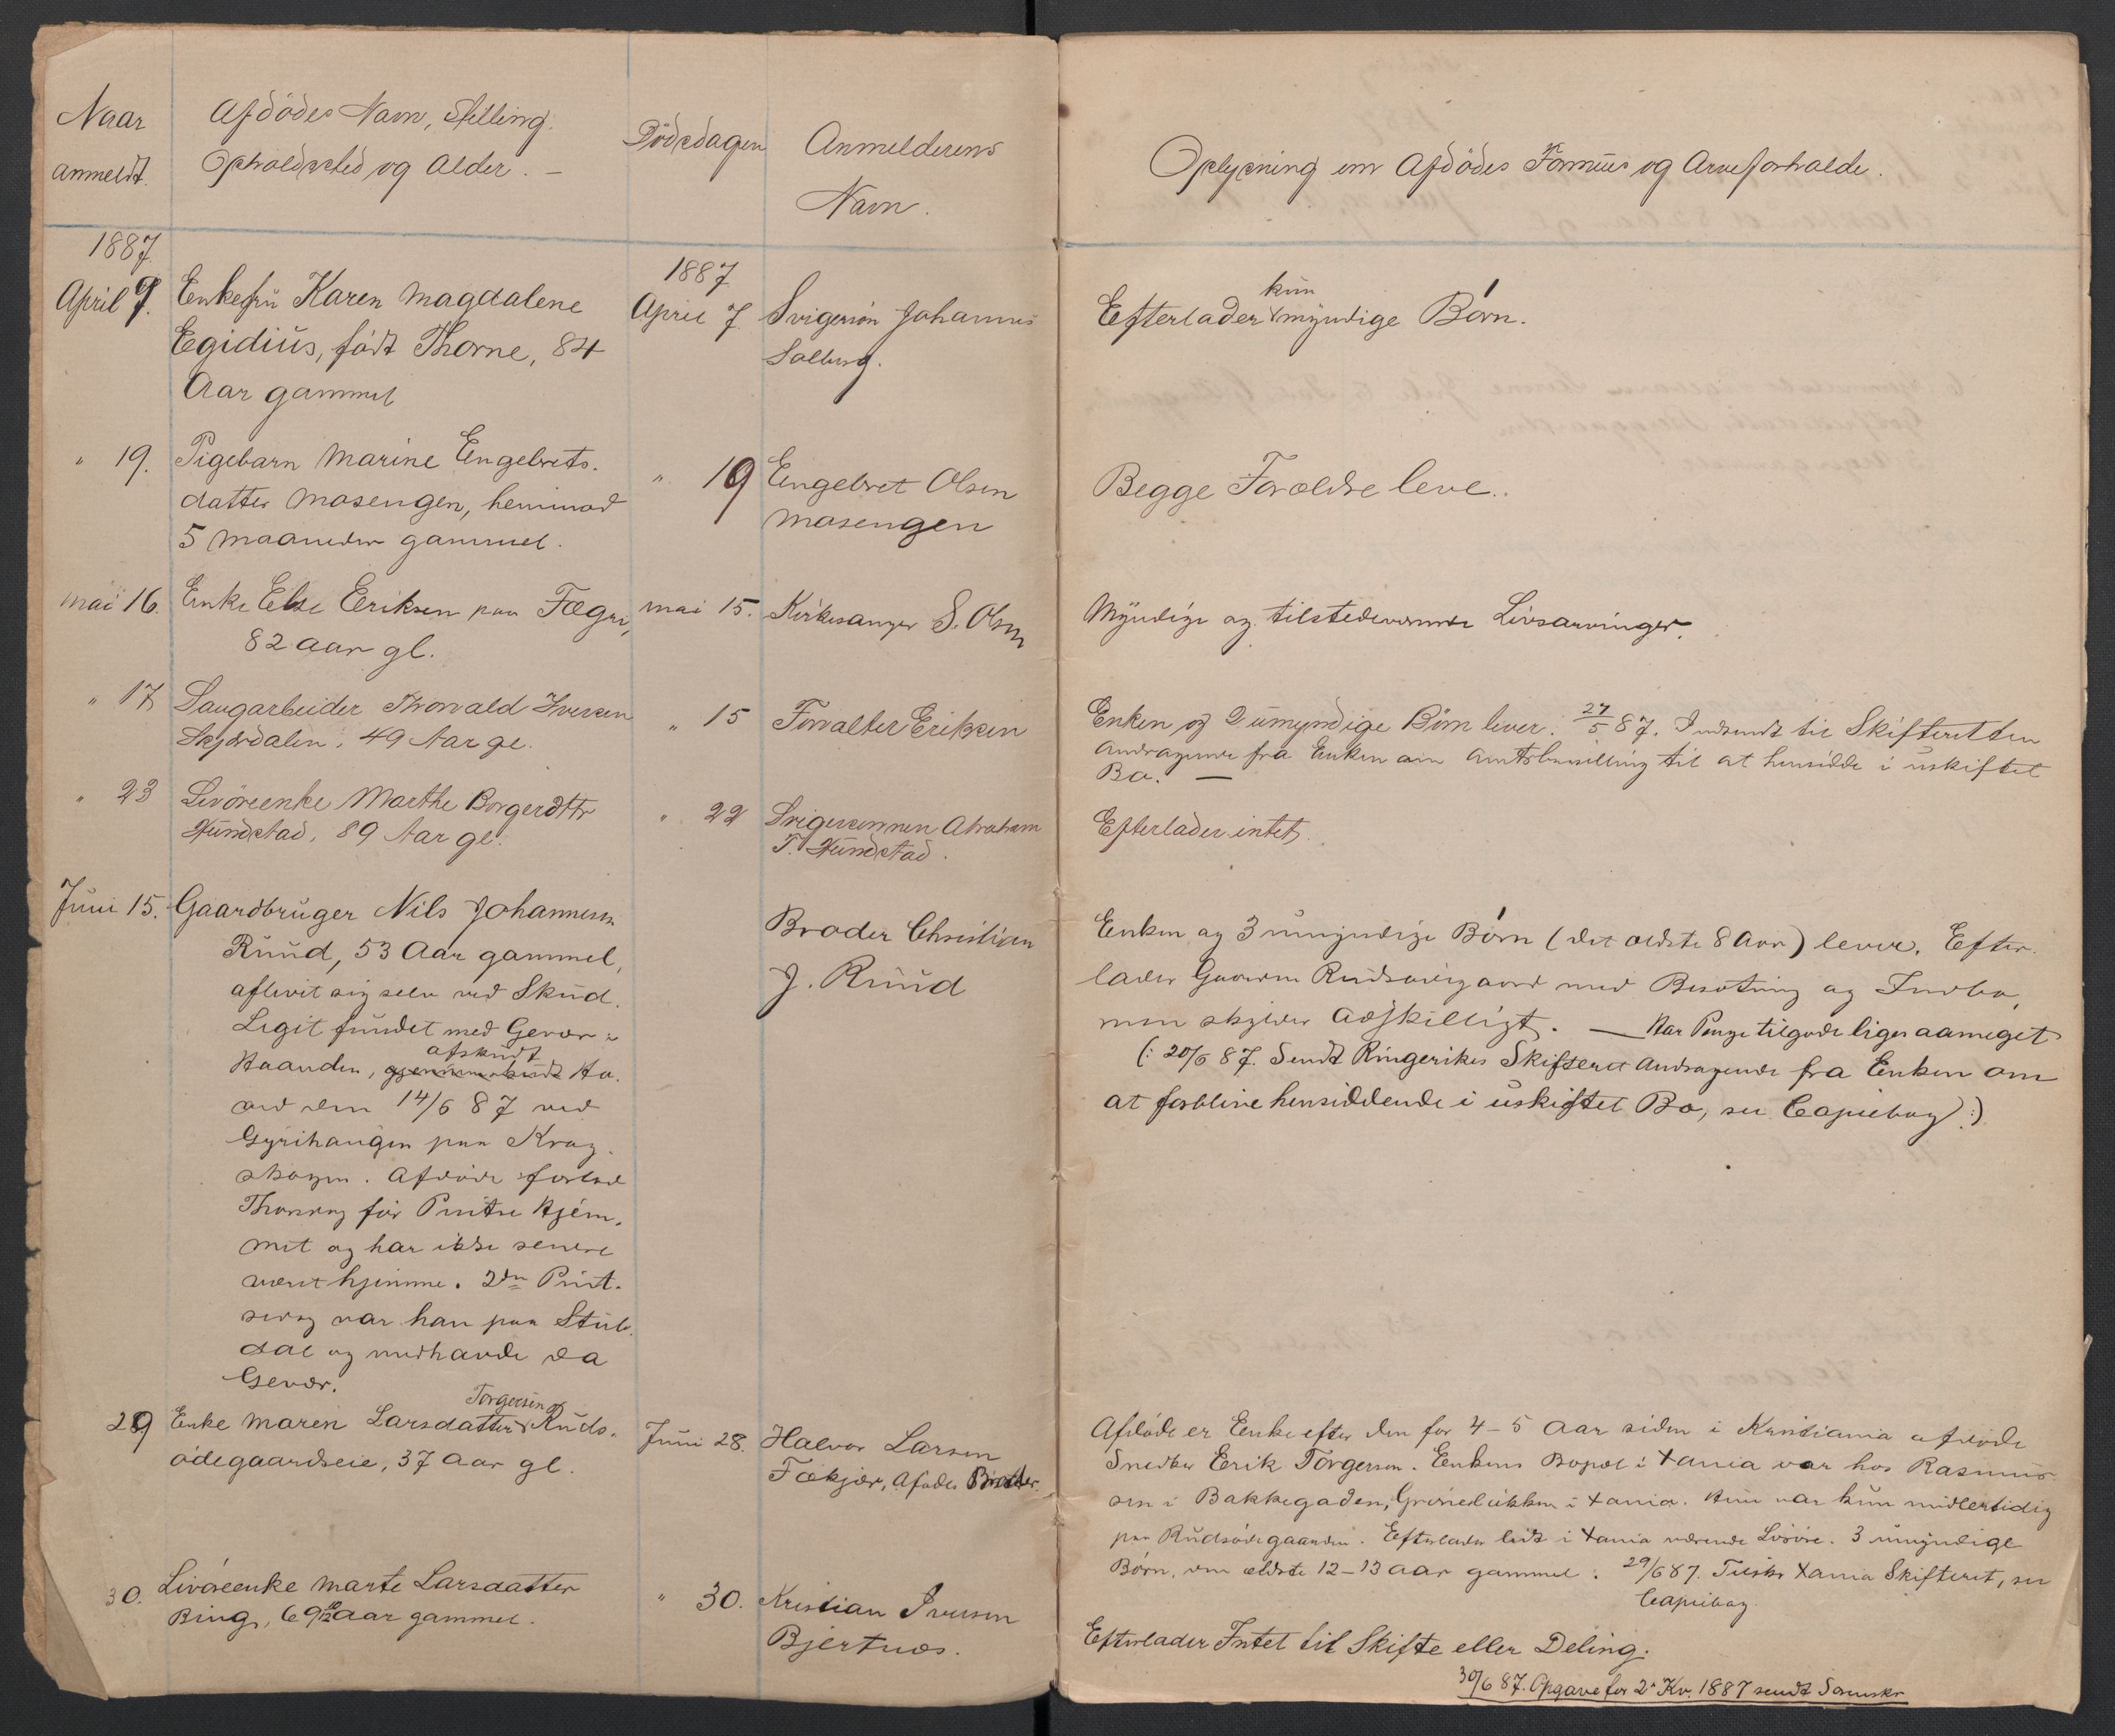 Naar
anmeldt.
Afdödes Navn, Stilling.
Opholdssted og Alder. –
Dödsdagen
Anmelderens
Navn.
Oplysning om Afdödes Formues og Arveforholde.
1887.
April 9.
Enkefru Karen Magdalene
Egidius, født Thorne, 84
Aar gammel
1887
April 7
Svigersön Johannes
Solberg.
kun
Efterlader myndige Børn.
" 19.
Pigebarn Marine Engebrets-
datter Mosengen, henimod
5 Maaneder gammel.
" 19
Engebret Olsen
Mosengen
Begge Forældre leve.
Mai 16.
Enke Else Eriksen paa Fægri,
82 Aar gl.
Mai 15.
Kirkesanger S. Olsen
Myndige og tilstedeværende Livsarvinger.
" 17
Saugarbeider Thorvald Iversen
Skjørdalen, 49 Aar gl.
" 15
Forvalter Eriksen
Enken og 2 umyndige Børn lever. 27/5 87. Indsendt til Skifteretten
Andragende fra Enken om Amtsbevilling til at hensidde i uskiftet
Bo. —
" 23
Levöreenke Marthe Borgerdttr
Hundstad, 89 Aar gl.
" 22
Svigersønnen Abraham
T. Hundstad.
Efterlader intet.
Juni 15.
Gaardbruger Nils Johannesen
Ruud, 53 Aar gammel,
aflivet sig selv ved Skud.
Legit fundet med Gevær i
afskudt
Haanden, gjennemskudt Ho-
ved den 14/6 87 ved
Gyrihaugen paa Krog-
skogen. Afdöde forlod
Thorsdag før Pintse Hjem-
met og har ikke senere
været hjemme. 2den Pint-
sedag var han paa Stub-
dal og medhavde da
Gevær.
Broder Christian
J. Ruud
Enken og 3 umyndige Börn (det ældste 8 Aar) lever. Efter-
lader Gaarden Rudsødegaard med Besætning og Indbo,
men skylder adskilligt. — Har Penge tilgode ligesaameget
(: 20/6 87. Sendt Ringerikes Skifteret Andragende fra Enken om
at forblive hensiddende i uskiftet Bo, se Copiebog :)
Torgersen
29
Enke Maren Larsdatter Ruds-
ödegaardseie, 37 Aar gl.
Juni 28.
Halvor Larsen
Fækjær, Afdødes Broder.
Afdöde er Enke efter den for 4–5 Aar siden i Kristiania afdöde
Snedker Erik Torgersen. Enkens Bopæl i Xania var hos Rasmus-
sen i Bakkegaden, Grünerløkken i Xania. Hun var kun midlertidig
paa Rudsødegaarden. Efterlader lidt i Xania værende Løsøre. 3 umyndige
Børn, den ældste 12–13 Aar gammel. 29/6 87. Tilskr Xania Skifteret, se
Copiebog
30.
Livöreenke Marte Larsdatter
Bing, 69 10/12 Aar gammel.
" 30.
Kristian Iversen
Bjertnæs.
Efterlader Intet til Skifte eller Deling.
30/6 87. Opgave for 2det Kv. 1887 sendt Sorenskr